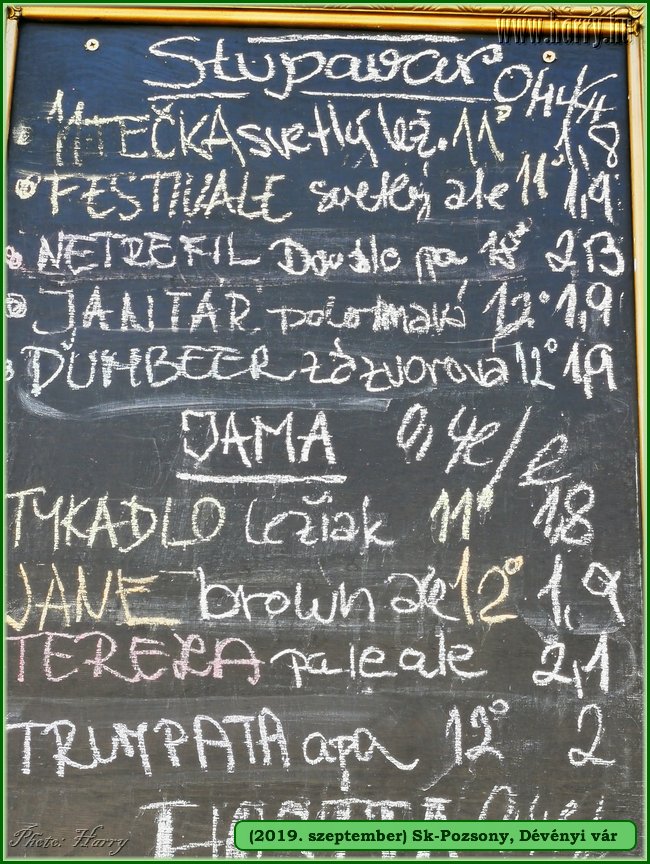 www.harry.hu
Stupavar 0,4l/€
11 MTEČKA svetlý lež. 11° 1,8
FESTIVALE svetlý ale 11° 1,9
NETREFIL Double ipa 18° 2,3
JANTÁR polotmavá 12° 1,9
ĎUMBEER zázvorová 12° 1,9
JAMA 0,4l/€
TYKADLO ležiak 11° 1,8
JANE brown ale 12° 1,9
TEREZA pale ale 2,1
TRUMPATA apa 12° 2
(2019. szeptember) Sk-Pozsony, Dévényi vár
Photo: Harry